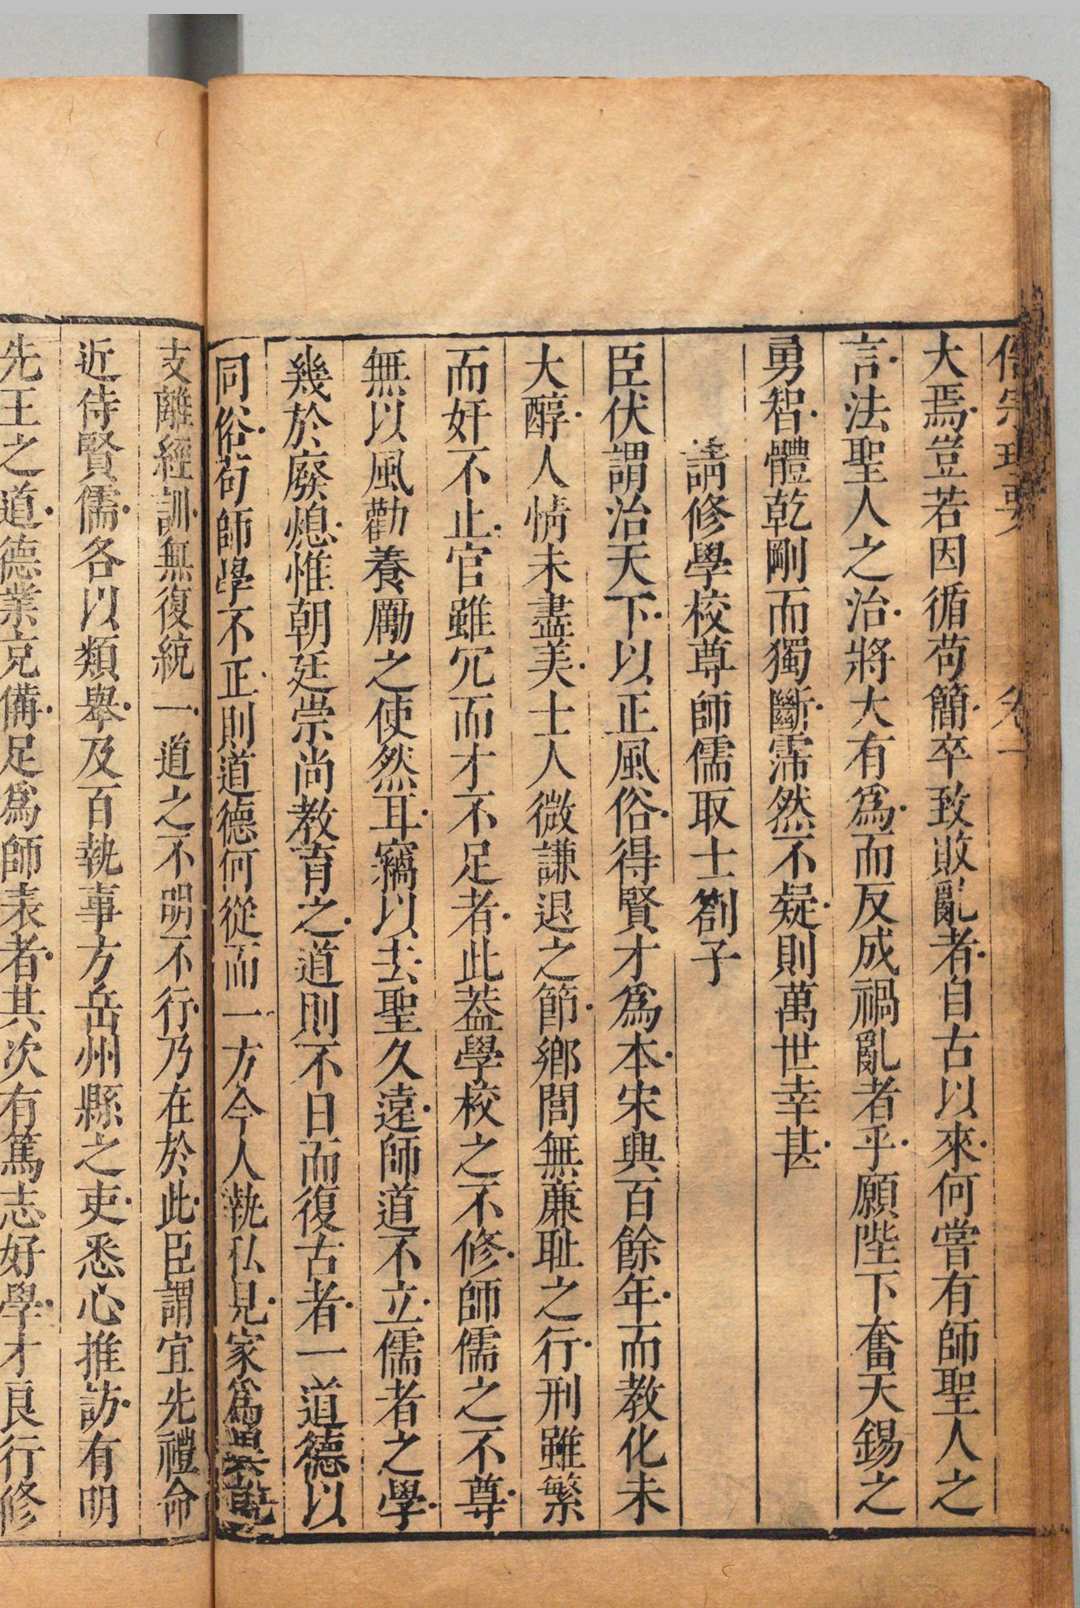 大焉豈若因循苟簡卒致敗亂者自古以來何嘗有師聖人之
言法聖人之治將大有爲而反成禍亂者乎願陛下奮天錫之
勇智體乾剛而獨斷霈然不疑則萬世幸甚
請修學校尊師儒取士劄子
臣伏謂治天下以正風俗得賢才爲本宋興百餘年而教化未
大醇人情未盡美士人微謙退之節鄉閭無廉耻之行刑雖繁
而奸不止官雖冗而才不足者此葢學校之不修師儒之不尊
無以風勸養勵之使然耳竊以去聖久遠師道不立儒者之學
幾於廢熄惟朝廷崇尚教育之道則不日而復古者一道德以
同俗苟師學不正則道德何從而一方今人執私見家爲異說
支離經訓無復統一道之不明不行乃在於此臣謂宜先禮命
近侍賢儒各以類舉及百執事方岳州縣之吏悉心推訪有明
先王之道德業充備足爲師表者其次有篤志好學才良行修